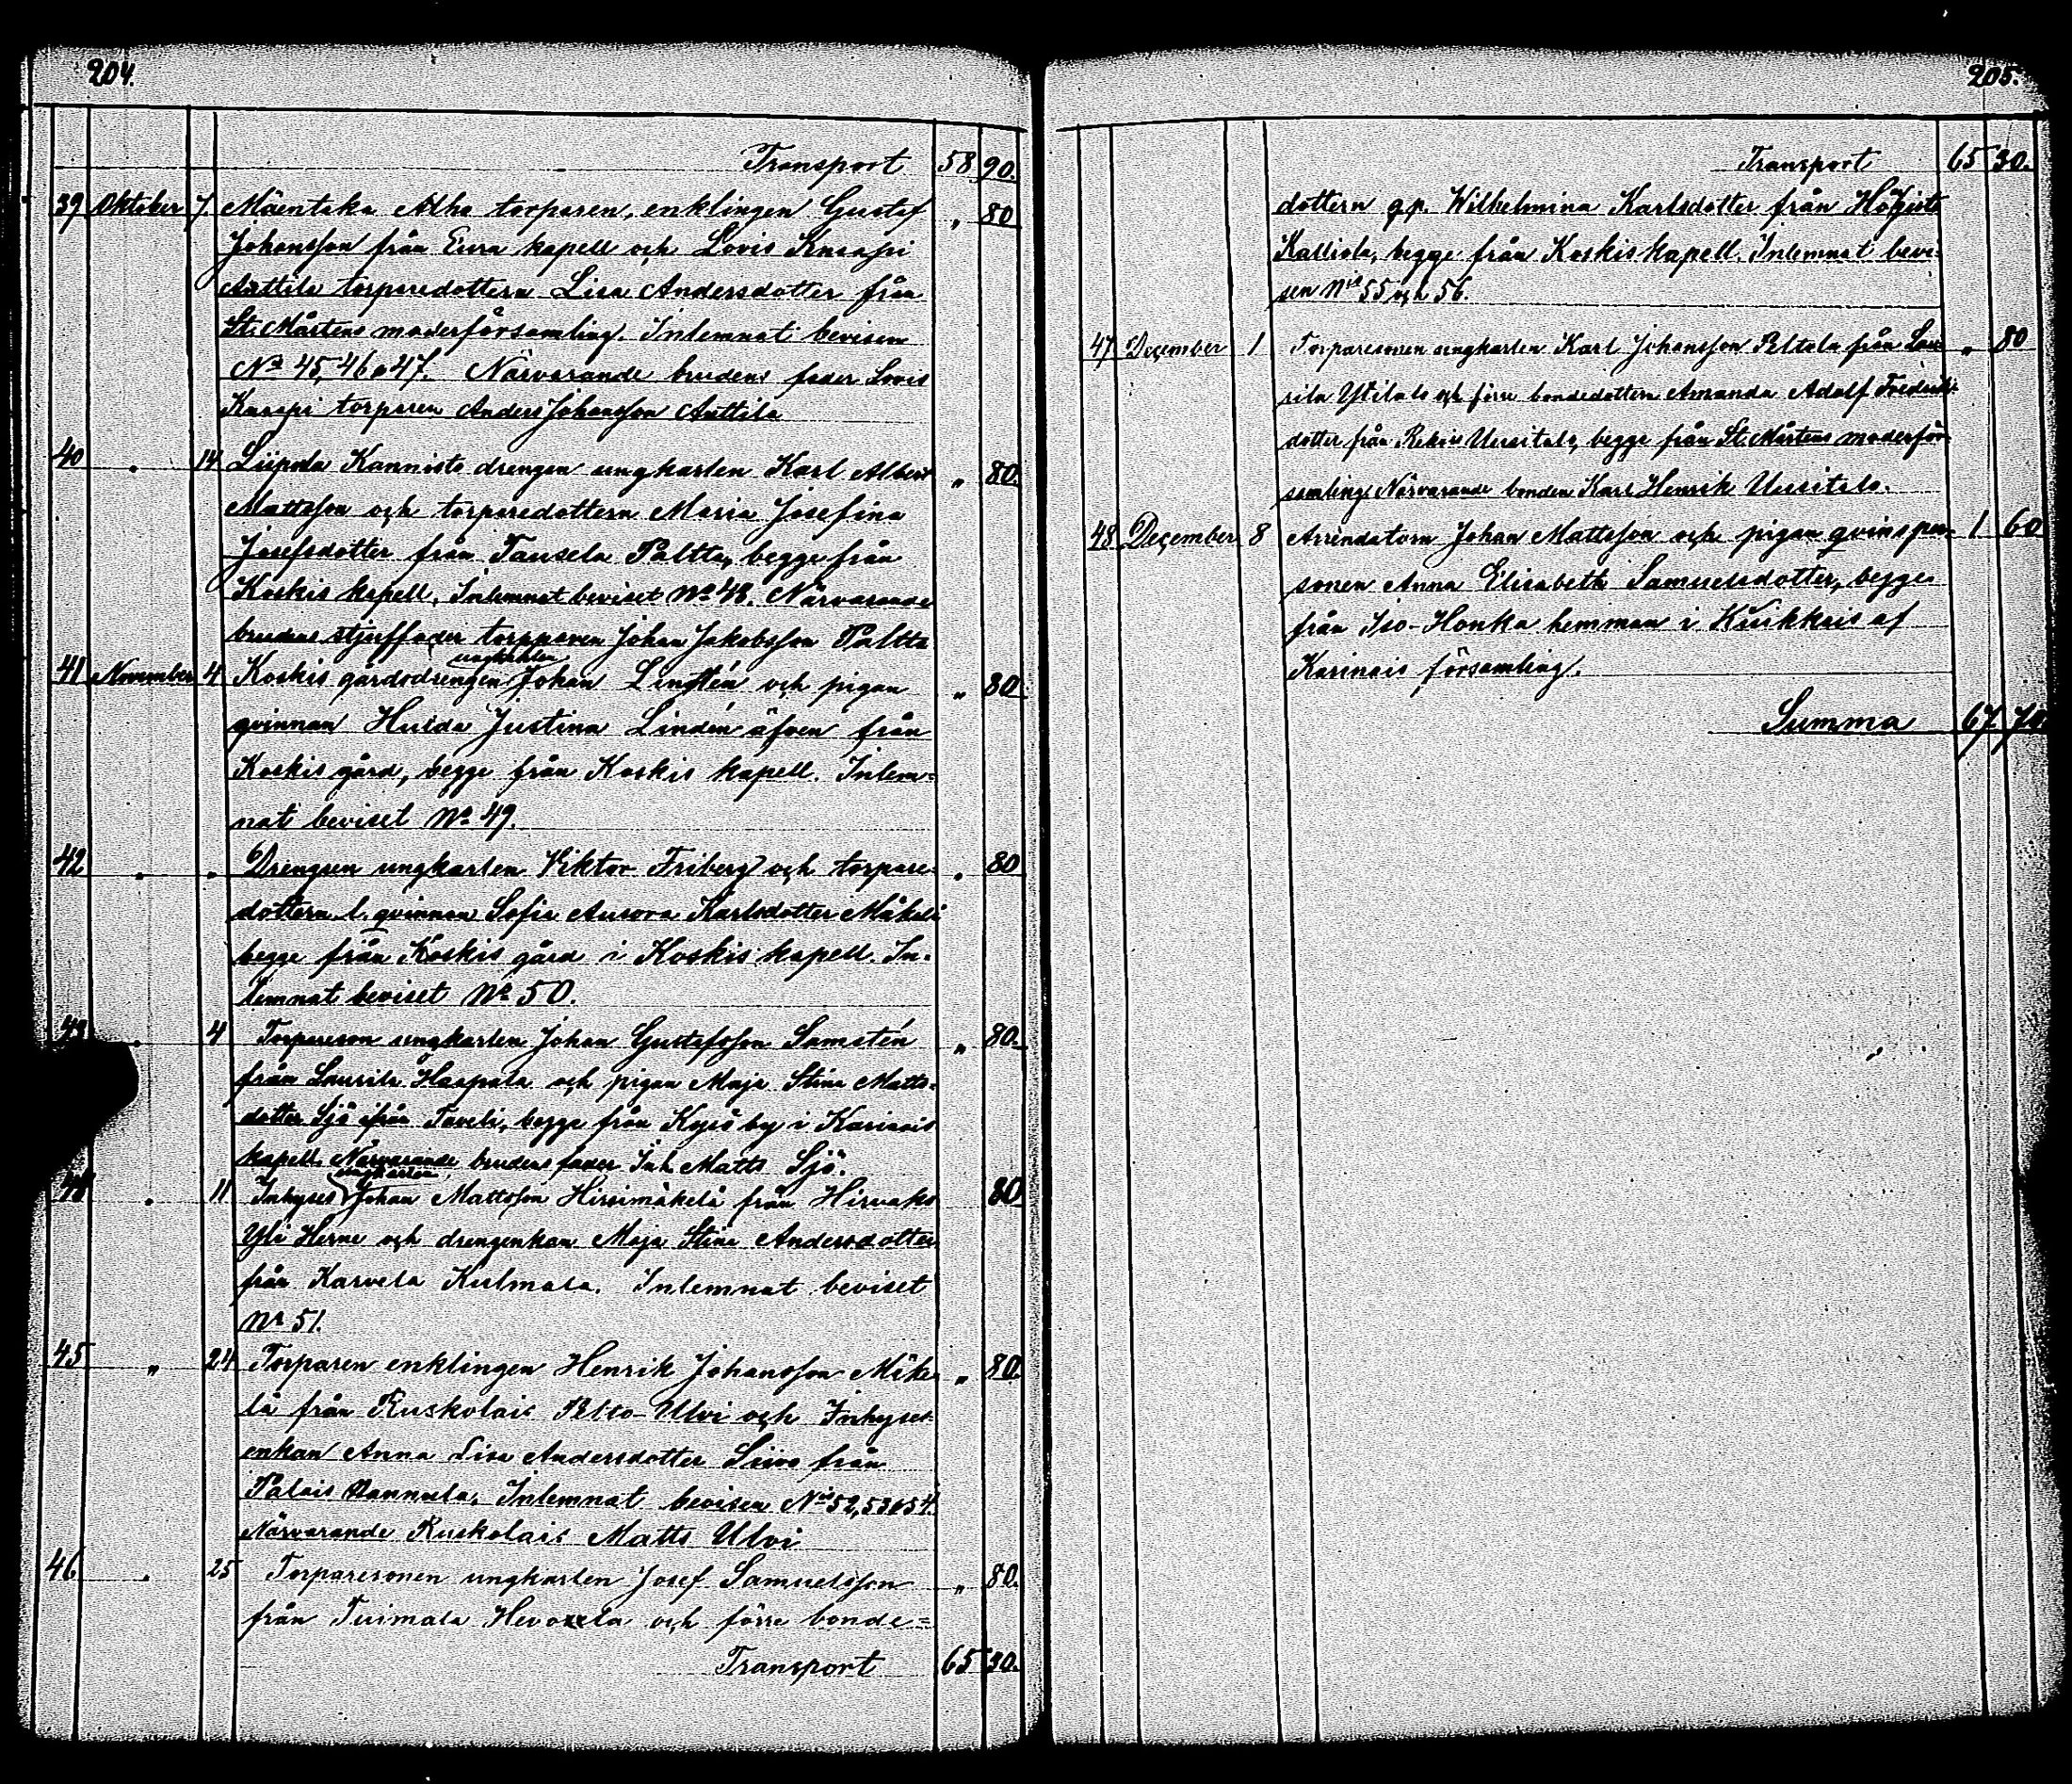 204.
Transport 58 90.
39 Oktober 7. Mäentaka Alho torparen, enklingen Gustaf „ 80
Johansson från Eura kapell och Lovis Knaapi
Anttila torparedottern Lisa Andersdotter från
St. Mårtens moderförsamling. Inlemnat bevisen
No 45, 46 o 47. Närvarande brudens fader Lovis
Knaapi torparen Anders Johansson Anttila
40 „ 14 Liipola Kannisto drengen ungkarlen Karl Albert „ 80.
Mattsson och torparedottern Maria Josefina
Josefsdotter från Tausela Paltta, begge från
Koskis kapell. Inlemnat beviset No 48. Närvarande
brudens stjuffader torpparen Johan Jakobsson Paltta
ungkarlen
41 November 4 Koskis gårdsdrengen Johan Lindén och pigan „ 80
qvinnan Hulda Justina Lindén äfven från
Koskis gård, begge från Koskis kapell. Inlem-
nat beviset No 49.
42 „ „ Drengen ungkarlen Viktor Friberg och torpare- „ 80
dottern l. qvinnan Sofia Aurora Karlsdotter Mäkelä
begge från Koskis gård i Koskis kapell. In-
lemnat beviset No 50.
43 „ 4 Torpareson ungkarlen Johan Gustafsson Samstén „ 80.
från Laurila Haapala och pigan Maja Stina Matts-
dotter Sjö från Taveli, begge från Kyrö by i Karinais
kapell. Närvarande brudens fader Inh. Matts Sjö.
ungkarlen
44 „ 11 Inhyses Johan Mattsson Hirsimäkelä från Hirvaks 80
Yli Herne och drengenkan Maja Stina Andersdotter
från Karvela Kulmala. Inlemnat beviset
No 51.
45 „ 24 Torparen enklingen Henrik Johansson Mäke- „ 80.
lä från Ruskolais Pelto-Ulvi och Inhyses
enkan Anna Lisa Andersdotter Siivo från
Palais Hannula. Inlemnat bevisen No 52, 53 o 54.
Närvarande Ruskolais Matts Ulvi
46 „ 25 Torparesonen ungkarlen Josef Samuelsson „ 80.
från Tuimala Hevoxela och förre bonde=
Transport 65 30.
205.
Transport 65 30.
dottern q.p. Wilhelmina Karlsdotter från Högisto
Kalliola, begge från Koskis kapell. Inlemnat bevi-
sen No 55 och 56.
47 December 1 Torparesonen ungkarlen Karl Johansson Peltola från Lau- „ 80
rila Ylitalo och förre bondedottern Amanda Adolf Fredriks-
dotter från Rekois Uusitalo, begge från St. Mårtens moderför-
samling. Närvarande bonden Karl Henrik Uusitalo.
48 December 8 Arrendatorn Johan Mattsson och pigan qvinsper- 1 60
sonen Anna Elisabeth Samuelsdotter, begge
från Iso-Honka hemman i Kuikkais af
Karinais församling.
Summa 67 70